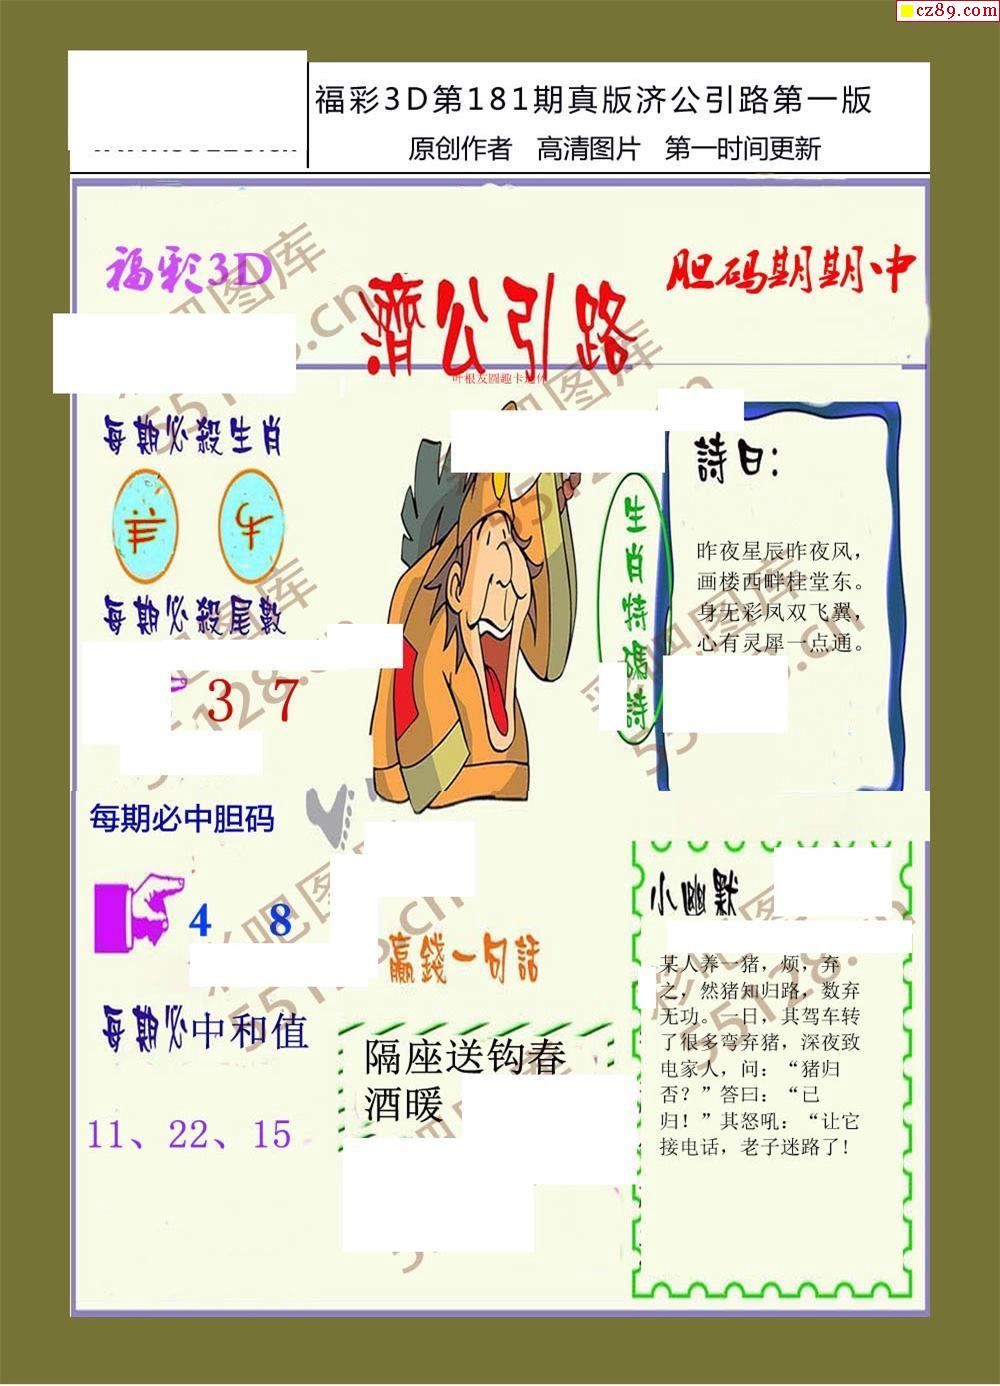 cz89.com
福彩3D第181期真版济公引路第一版
原创作者 高清图片 第一时间更新
福彩3D
濟公引路
胆码期期中
叶根友圆趣卡通体
每期必殺生肖
羊 牛
每期必殺尾數
3 7
每期必中胆码
4 8
每期必中和值
11、22、15
生肖特碼詩
詩曰:
昨夜星辰昨夜风,
画楼西畔桂堂东。
身无彩凤双飞翼,
心有灵犀一点通。
赢錢一句話
隔座送钩春
酒暖
小幽默
某人养一猪,烦,弃
之,然猪知归路,数弃
无功。一日,其驾车转
了很多弯弃猪,深夜致
电家人,问:“猪归
否?”答曰:“已
归!”其怒吼:“让它
接电话,老子迷路了!
彩吧图库
55128.cn